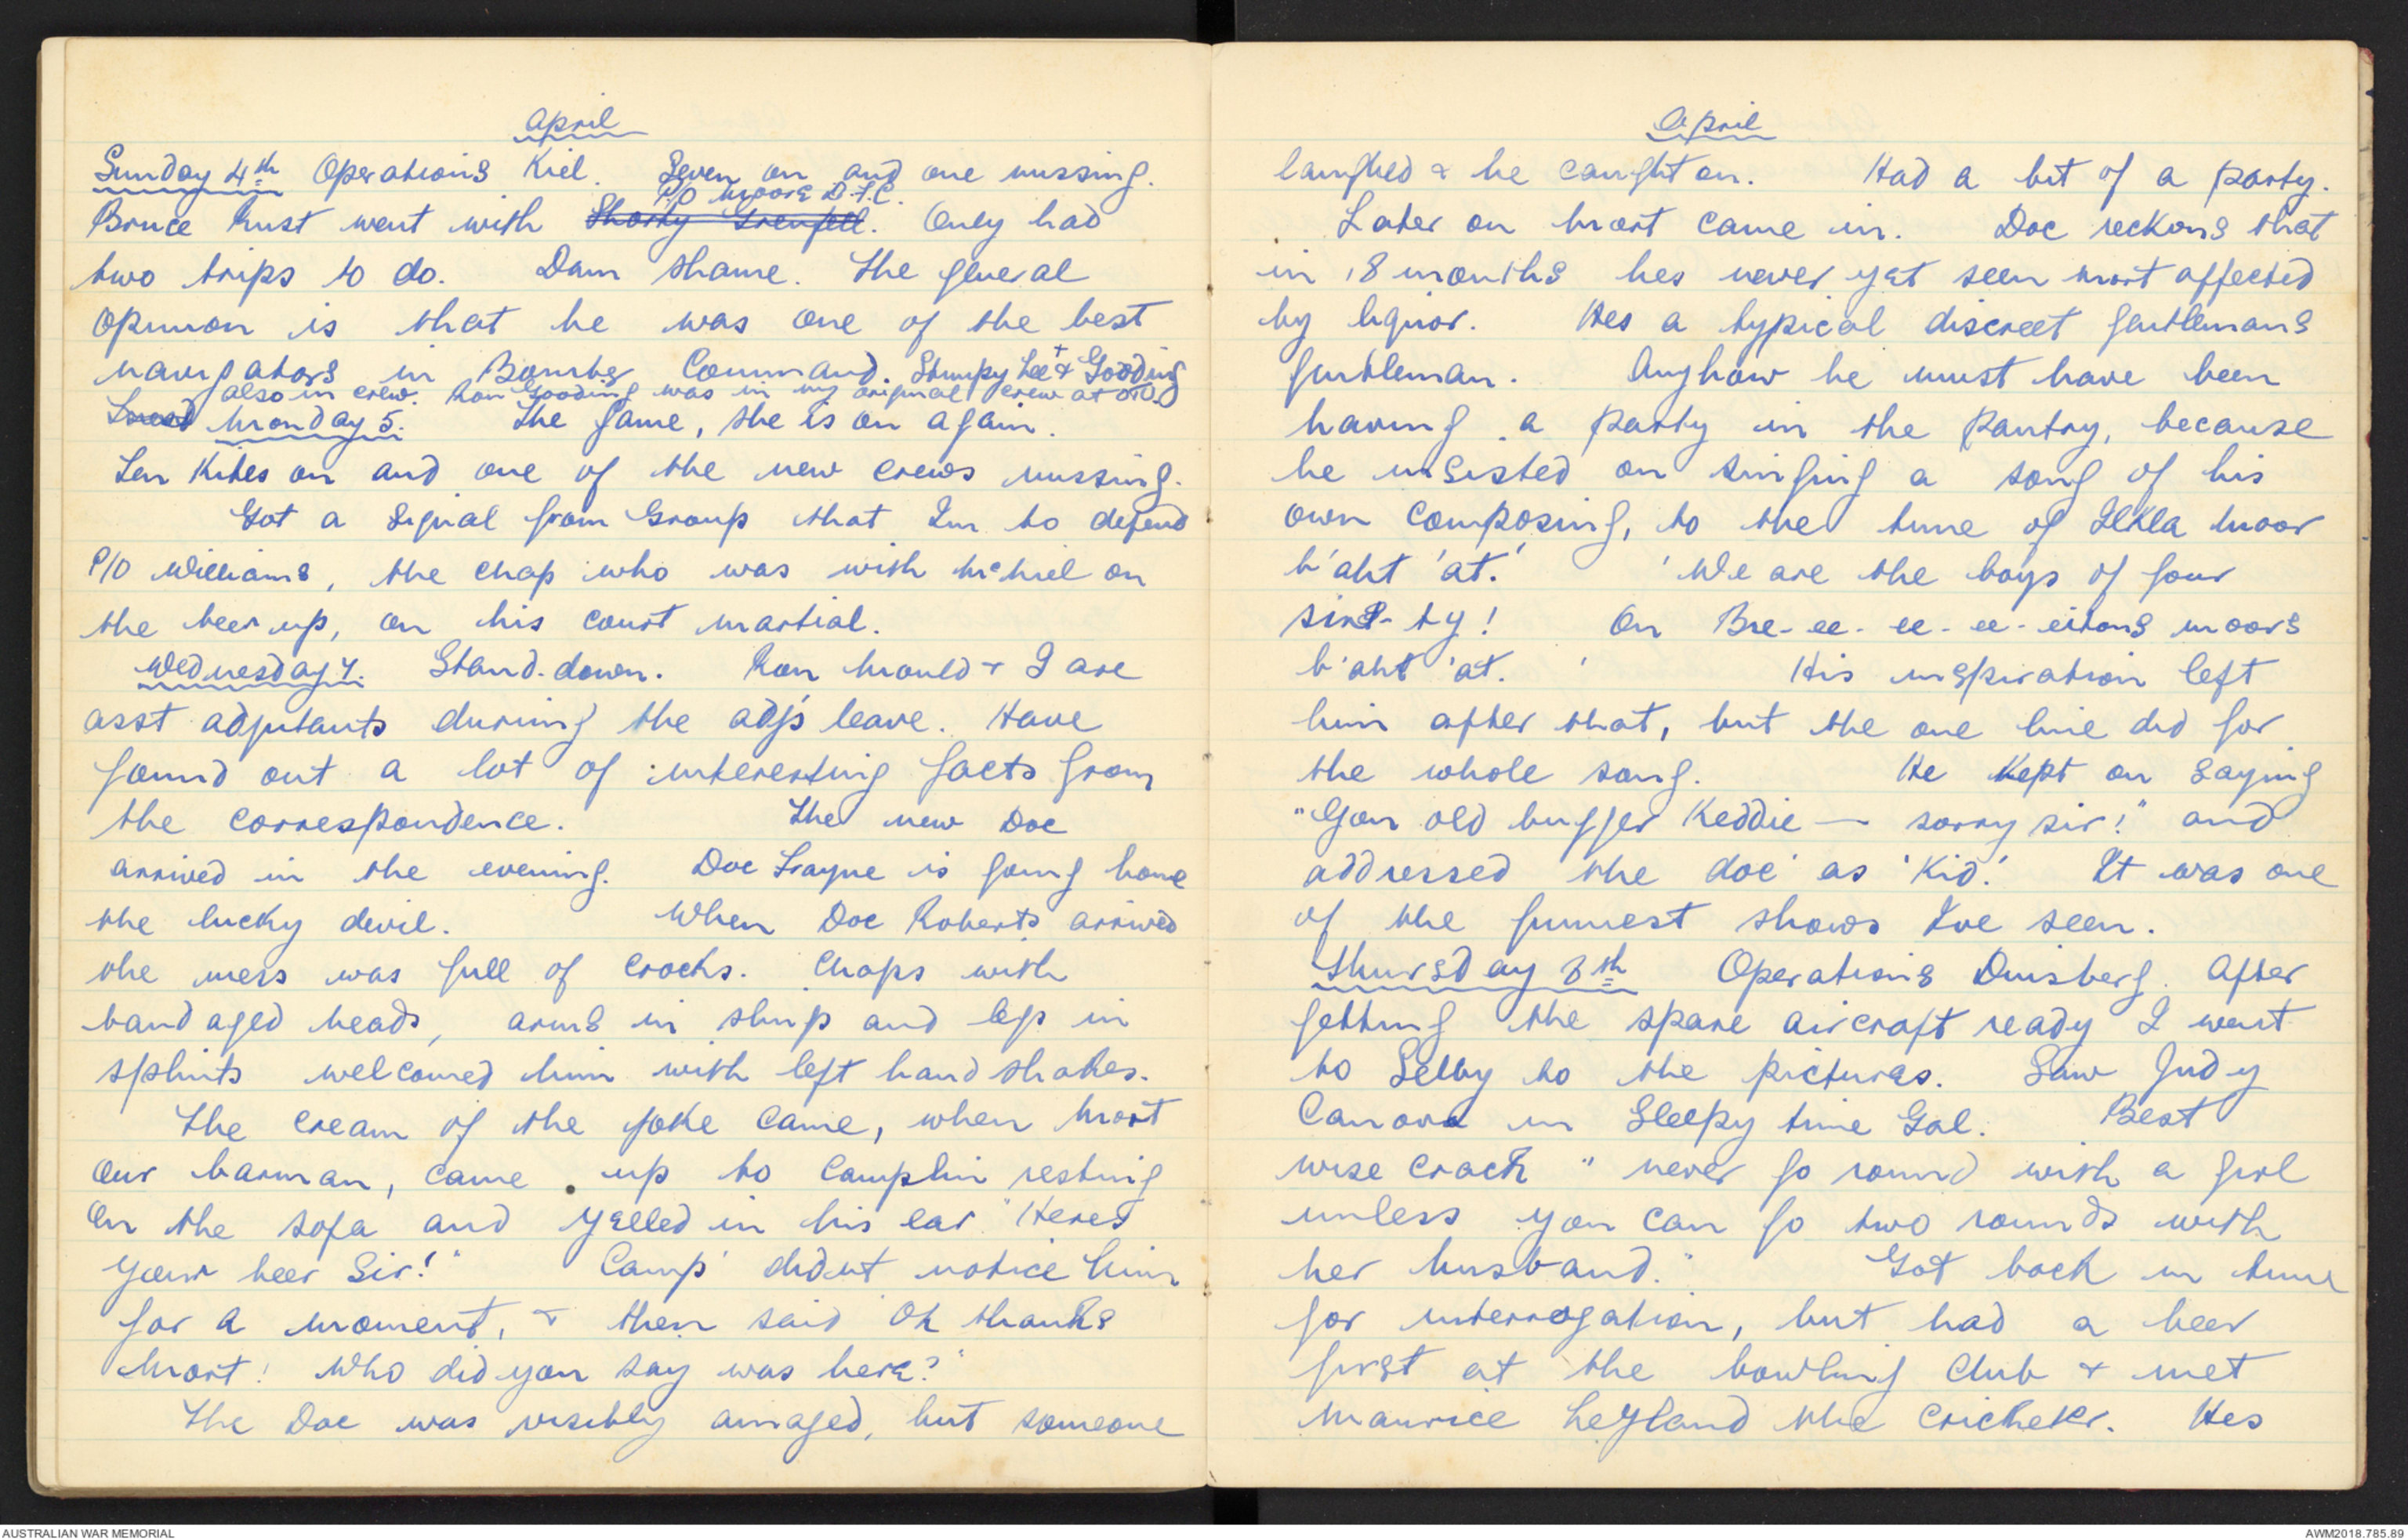 April
Sunday 4th Operations Kiel. Seven on and one missing.
P/O Moore D.F.C.
Bruce Rust went with Shorty Grenfell. Only had
two trips to do. Dam shame. The general
opinion is that he was one of the best
navigators in Bomber Command. Stumpy Lee + & Gooding
also in crew. Ron Gooding was in my original crew at OTU.
Monday 5. The same, she is on again.
Ten kites on and one of the new crews missing.
Got a signal from Group that Im to defend
P/O Williams, the chap who was with McNiel on
the beer up, on his court martial.
Wednesday 7. Stand-down. Ron Mould & I are
asst adjutants during the adjs leave. Have
found out a lot of interesting facts from
the correspondence. The new Doc
arrived in the evening. Doc Trayne is going home
the lucky devil. When Doc Roberts arrived
the mess was full of crocks. Chaps with
bandaged heads, arms in slings and legs in
splints welcomed him with left hand shakes.
The cream of the joke came, when Mort
our barman, came up to Camplin resting
on the sofa and yelled in his ear "Heres
your beer Sir!" 'Camp' didnt notice him
for a moment, & then said "Oh thanks
Mort! Who did you say was here?"
The Doc was visibly amazed, but someone
April
laughed & he caught on. Had a bit of a party.
Later on Mort came in. Doc reckons that
in 18 months hes never yet seen Mort affected
by liquor. Hes a typical discreet gentlemans
gentleman. Anyhow he must have been
having a party in the pantry, because
he insisted on singing a song of his
own composing, to the tune of Ilkla Moor
b'aht 'at.' 'We are the boys of four
six-ty! On Bre-ee-ee-ee-eitons moors
b'aht 'at.' His inspiration left
him after that, but the one line did for
the whole song. He kept on saying
"You old bugger Keddie — sorry sir!" and
addressed the doc as 'Kid.' It was one
of the funniest shows Ive seen.
Thursday 8th Operations Duisberg. After
getting the spare aircraft ready I went
to Selby to the pictures. Saw Judy
Canova in Sleepy time Gal. Best
wise crack " never go round with a girl
unless you can go two rounds with
her husband." Got back in time
for interrogation, but had a beer
first at the bowling club & met
Maurice Leyland the cricketer. Hes
AUSTRALIAN WAR MEMORIAL
AWM2018.785.89